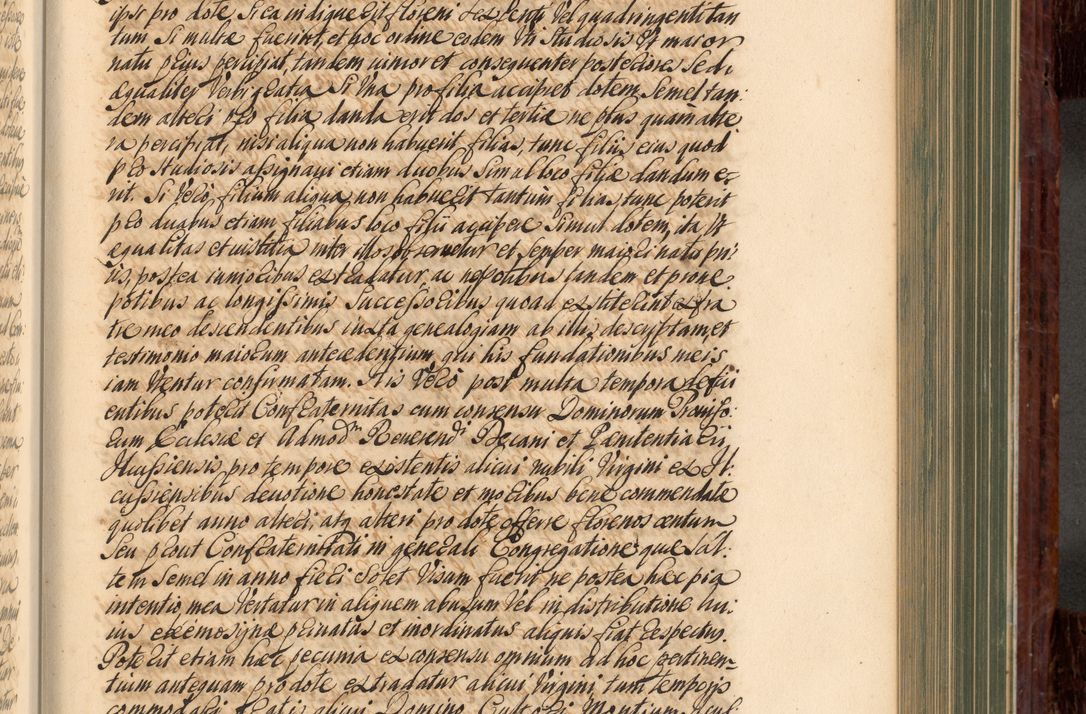 ipsi pro dote, si ea indigeret floreni trecenti vel quadringenti tan
tum si multae fuerint, et hoc ordine eodem uti studiosis ut maior
natu prius percipiat, tandem iunior et consequenter posteriores sed
aequaliter verbi gratia si una pro filia accipiet dotem semel tan-
dem alteri pro filia danda erit dos et tertiae ne plus quam alte
ra percipiat, nisi aliqua non habuerit filias, tunc filiis eius quod
pro studiosis assignavi etiam duobus simul loco filiae dandum e-
rit. Si vero filium aliqua non habuerit tantum filias, tunc poterit
pro duabus etiam filiabus loco filii accipere simul dotem, ita, ut
aequalitas et iustitia inter illos observetur et semper maiori natu pri-
us, postea iunioribus extradatur, ac nepotibus tandem et prone-
potibus ac longissimis successoribus quoad exstiterint ex fra
tre meo descendentibus iuxta genealogiam ab illis descriptam, et
testimonio maiorum antecedentium, qui his fundationibus meis
iam utentur confirmatam. His vero post multa tempora defici
entibus poterit Confraternitas cum consensu Dominorum Proviso-
rum Ecclesiae et Admodm Reverendi Decani et Paenitentiarii
Ilcussiensis, pro tempore existentis alicui nubili virgini ex Il-
cussiensibus devotione honestate et moribus bene commendatae
quolibet anno alteri, atq alteri pro dote offerre florenos centum
seu prout Confraternitati in generali Congregatione quae sal-
tem semel in anno fieri solet visum fuerit ne postea haec pia
intentio mea vertatur in aliquem abusum vel in distributione hu-
ius eleemosynae privatus et inordinatus aliquis fiat respectus.
Poterit etiam haec pecunia ex consensu omnium ad hoc pertinen-
tium antequam pro dote extradatur alicui virgini, tum temporis
commodari gratis alicui Domino Cultori Montium